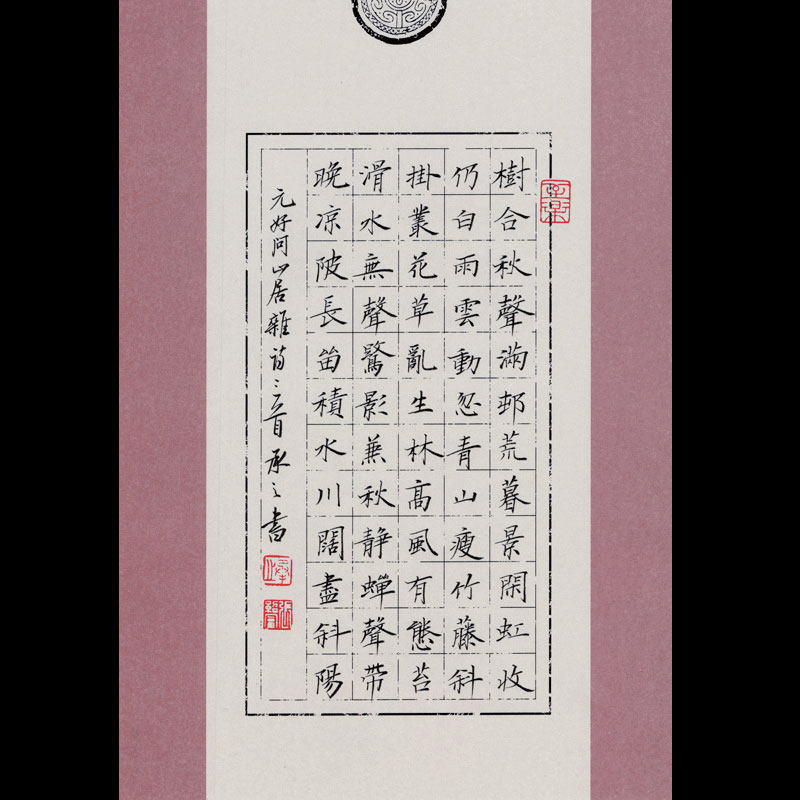 樹合秋聲滿邨荒暮景閑虹收
仍白雨雲動忽青山瘦竹藤斜
掛叢花草亂生林高風有態苔
滑水無聲鷺影兼秋靜蟬聲帶
晚凉陂長畄積水川闊盡斜陽
元好问山居雜诗三首承之書